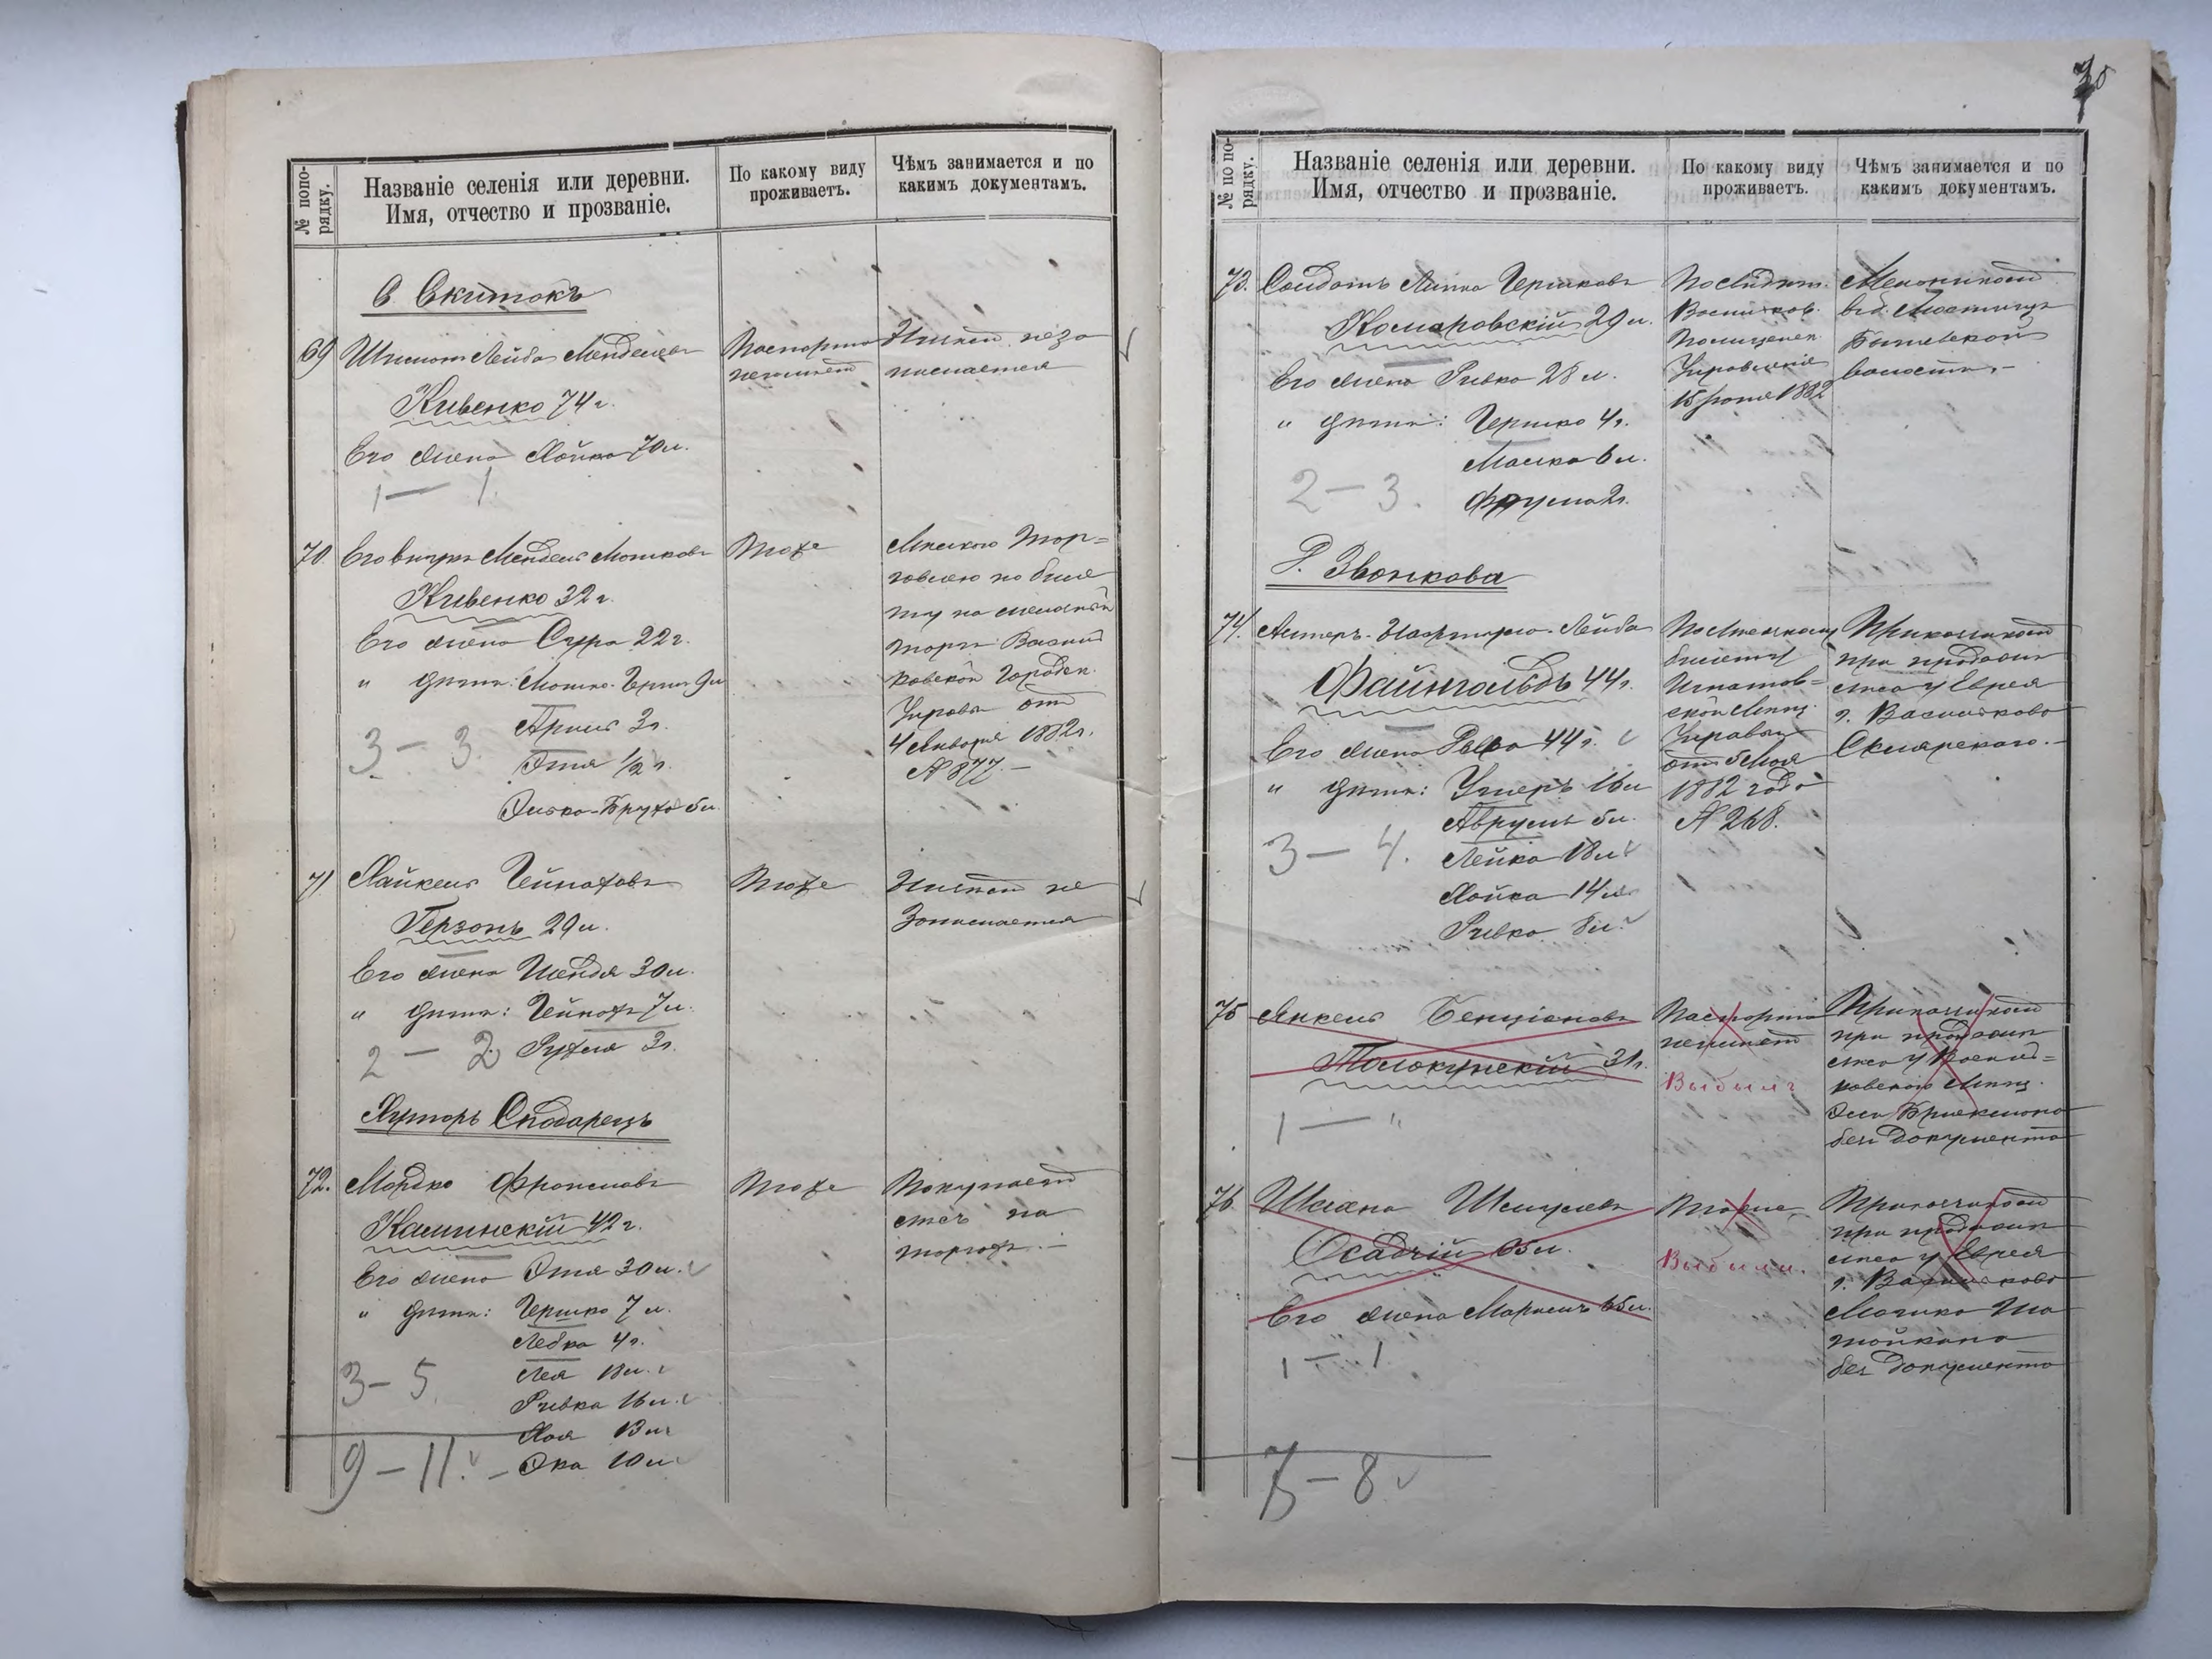 № попо-
рядку.
Названіе селенія или деревни.
Имя, отчество и прозваніе.
По какому виду
проживаетъ.
Чѣмъ занимается и по
какимъ документамъ.
С. Скитокъ
69 Шлиома Лейба Менделевъ
Кивенко 74 г.
Его жена Хайка 70 л.
1 — 1.
Паспорта
неимѣетъ
Ничѣмъ неза
нимается
70. Его внукъ Мендель Мошковъ
Кивенко 32 г.
Его жена Сура 22 г.
" дѣти: Мошко-Герш 9 л
Арикъ 3 г.
3 — 3.
Этя 1/2 г.
Элька-Бруха 5 л.
Тоже
Мѣлкою тор=
говлею по биле
ту на мелочный
торгъ Василь
ковской Городск.
Управы отъ
4 Января 1882 г.
№ 877.—
71 Хайкель Гейнаховъ
Герзонъ 29 л.
Его жена Шендля 30 л.
" дѣти: Гейнохъ 7 л.
2 — 2 Рухля 3 г.
Тоже
Ничѣмъ не
Занимается
Хуторъ Сподарецъ
72. Мордко Фроимовъ
Каминскій 42 г.
Его жена Этя 30 л.
" дѣти: Гершко 7 л.
Лейбка 4 г.
3 — 5.
Лея 18 л.
Ривка 16 л.
Хая 13 л
9 — 11. Эка 10 л
Тоже
Покупаетъ
на
торгахъ.—
70
№ по по-
рядку.
Названіе селенія или деревни.
Имя, отчество и прозваніе.
По какому виду
проживаетъ.
Чѣмъ занимается и по
какимъ документамъ.
73. Солдатъ Липка Гершковъ
Комаровскій 29 л.
Его жена Ривка 28 л.
" дѣти: Гершко 4 г.
Малка 6 л.
2 — 3. Фрума 2 г.
Василь ков.
Полицейск.
Управленія
15 1882
Мельникомъ
Мостищъ
волости.—
Д. Звонкова
74. Лейба
Файнгольдъ 44 г.
Его жена 44 г.
" дѣти: Ушеръ 16 л
Аврумъ 5 л.
3 — 4. Лейка 18 л
Хайка 14 л
Ривка 8 л.
По Мѣщанскому
билету
Игнатов=
ской Мѣщ.
Управы
отъ 5 Мая
1882 года
№ 268.
Прикащикомъ
при продажѣ
мяса у Еврея
г. Василькова
Склярскаго.—
75 Янкель Бенціоновъ
Толокунскій 31 г.
1 — "
Паспорта
неимѣетъ
Выбылъ
Прикащикомъ
при продажѣ
мяса у Василь=
ковскаго Мѣщ.
без документа
76 Шмуневъ
Осадчій 65 л.
Его жена 65 л.
1 — 1
Тоже
Выбыли.
Прикащикомъ
при продажѣ
мяса у Еврея
г. Василькова
без документа
7 — 8